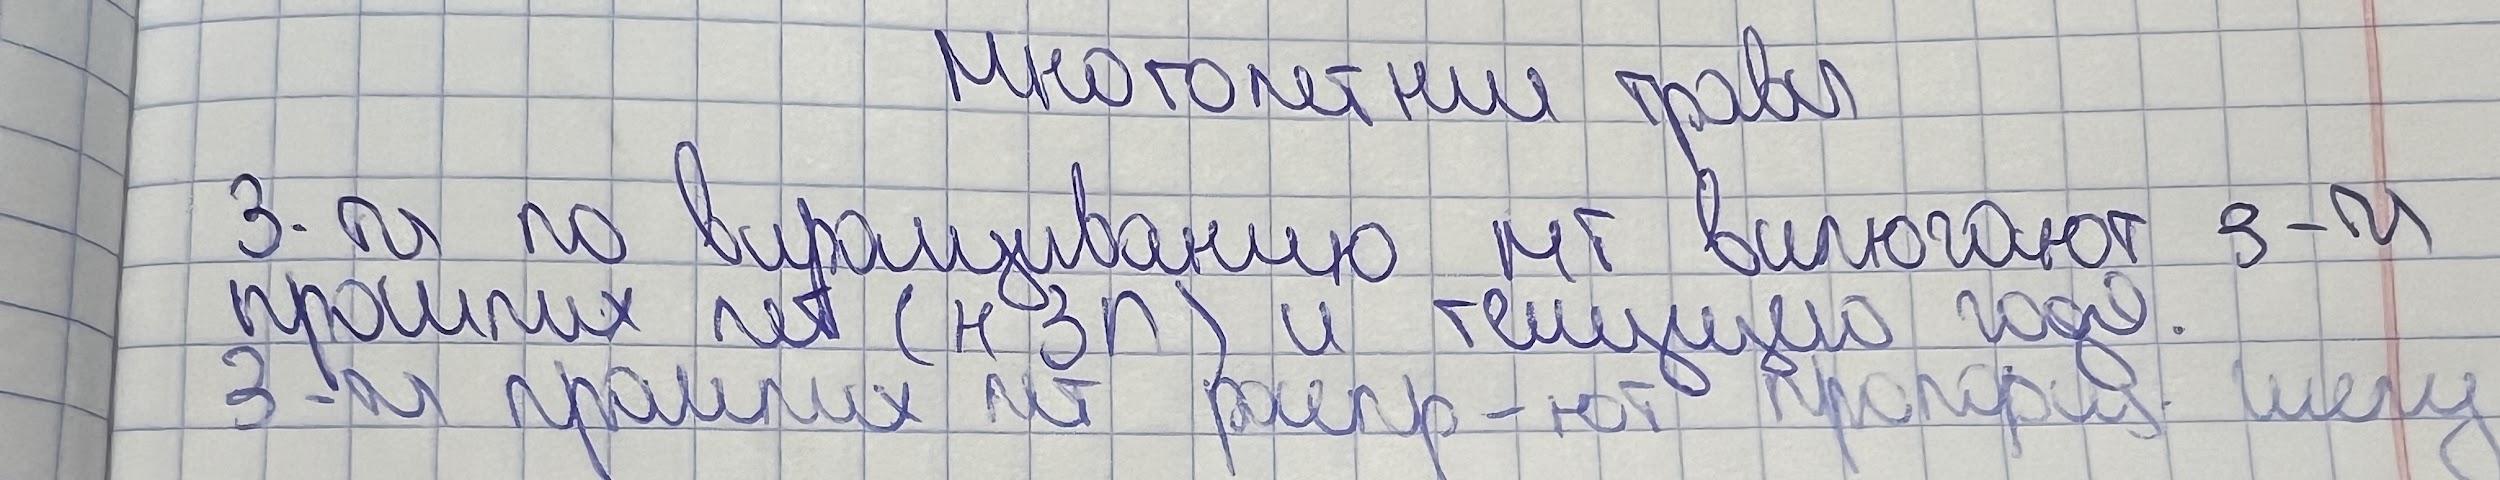 Многолетние травы
З-ты по выращиванию мт включают з-ты
прошлых лет (НЗП) и текущего года.
З-ты прошлых лет распр-ют пропорц. между